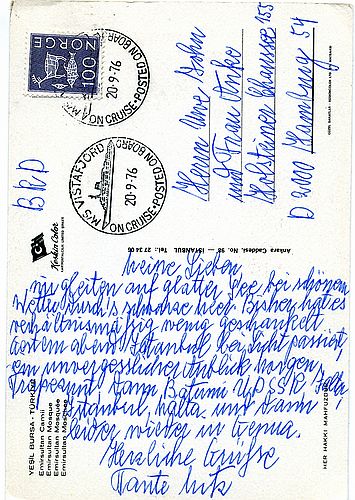 NORGE
100
M/S VISTAFJORD
ON CRUISE • POSTED ON BOARD
20-9-76
M/S VISTAFJORD
ON CRUISE • POSTED ON BOARD
20-9-76
BRD
Herrn Uwe Bohn
und Frau Anke
Holsteiner Chaussee 155
D 2000 Hamburg 54
Keskin Color
Ankara Caddesi, No. 98 — İSTANBUL Tel.: 27 34 05
YEŞİL BURSA - TÜRKİYE
Emirsultan Camii
Emirsultan Mosque
Emirsultan Mosquée
Emirsultan Moschee
HER HAKKI MAHFUZDUR
Meine Lieben,
wir gleiten auf glatter See bei schönem
Wetter durch's schwarze Meer. Bisher hat es
verhältnismäßig wenig geschaukelt.
Gestern abend Istanbul bei Licht passiert,
ein unvergesslicher Anblick. Morgen
Trapezunt dann Batumi UdSSR, Jalta
Istanbul, Malta und dann
leider wieder in Genua.
Herzliche Grüße
Tante